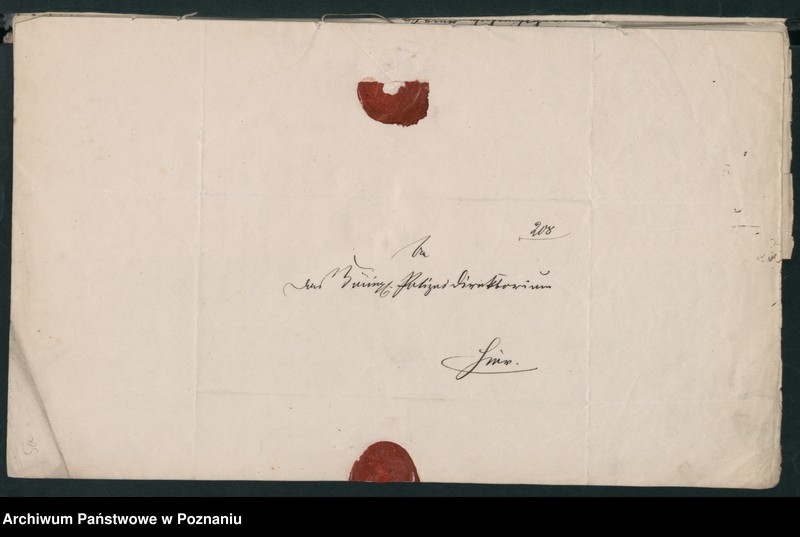 208
An
das Königl. Polizei Direktorium
Hier.
Archiwum Państwowe w Poznaniu